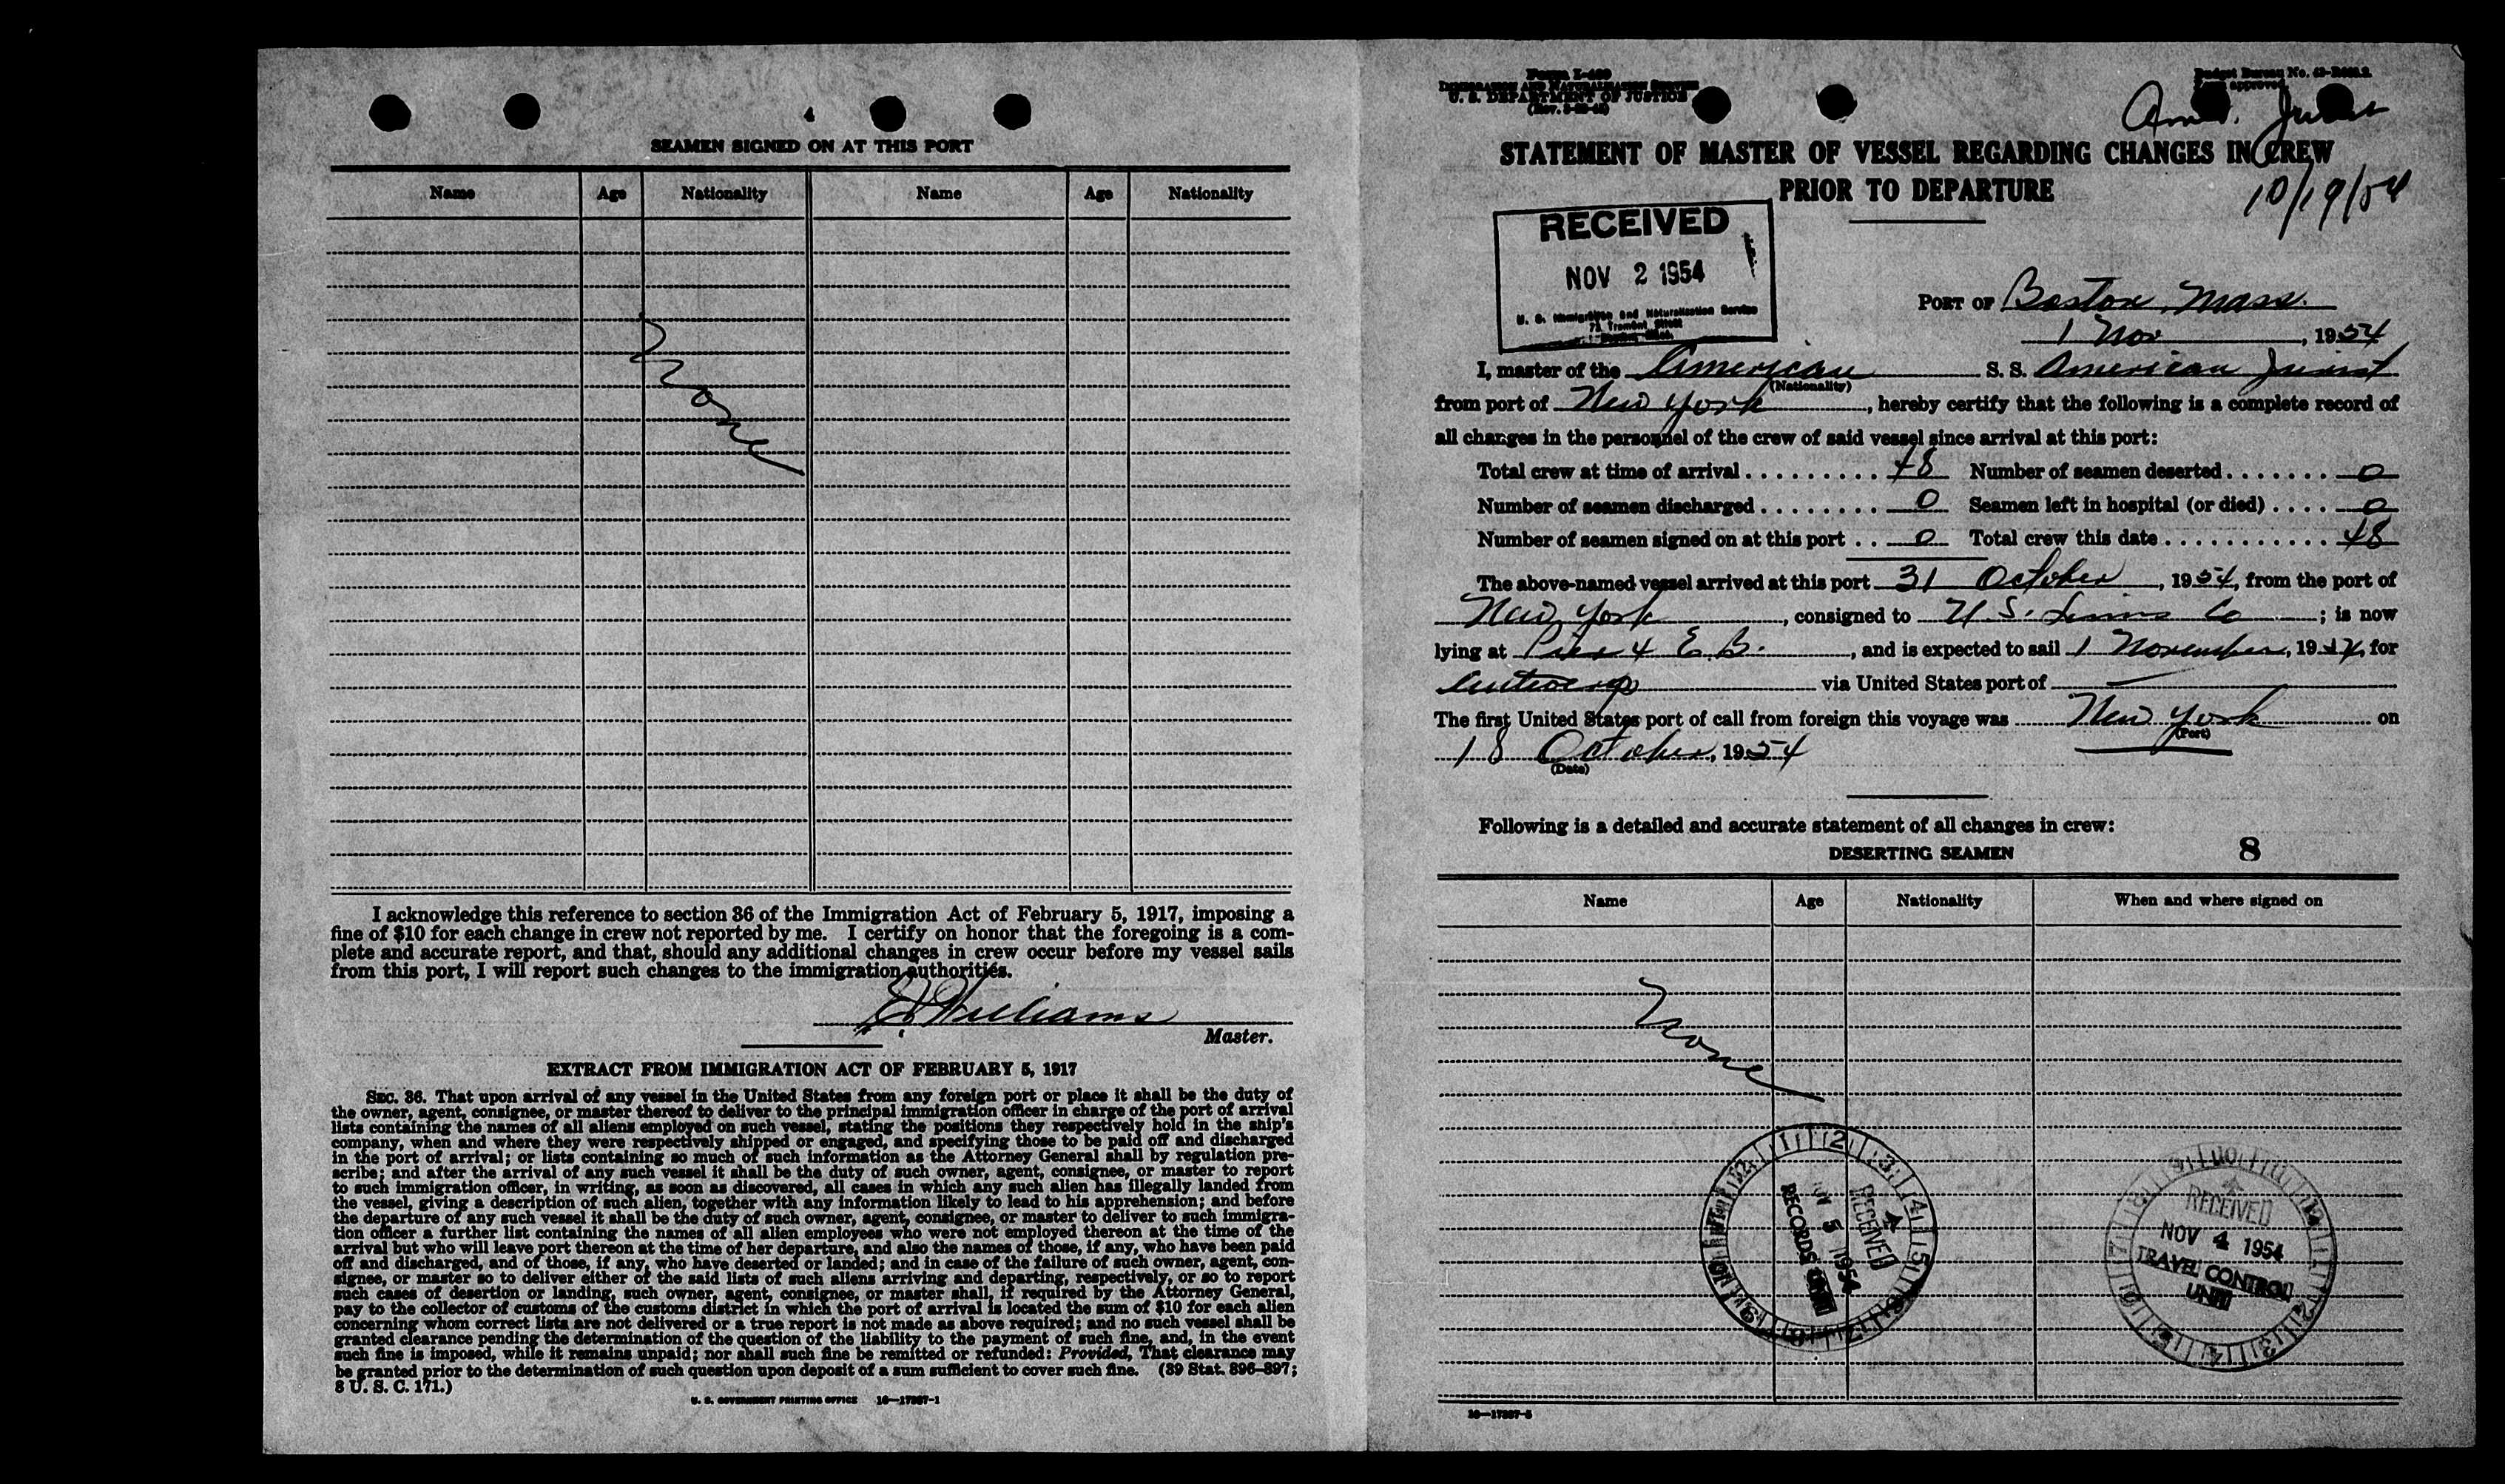 4
SEAMEN SIGNED ON AT THIS PORT
Name Age Nationality Name Age Nationality
None
I acknowledge this reference to section 36 of the Immigration Act of February 5, 1917, imposing a
fine of $10 for each change in crew not reported by me. I certify on honor that the foregoing is a com-
plete and accurate report, and that, should any additional changes in crew occur before my vessel sails
from this port, I will report such changes to the immigration authorities.
Williams
Master.
EXTRACT FROM IMMIGRATION ACT OF FEBRUARY 5, 1917
SEC. 36. That upon arrival of any vessel in the United States from any foreign port or place it shall be the duty of
the owner, agent, consignee, or master thereof to deliver to the principal immigration officer in charge of the port of arrival
lists containing the names of all aliens employed on such vessel, stating the positions they respectively hold in the ship's
company, when and where they were respectively shipped or engaged, and specifying those to be paid off and discharged
in the port of arrival; or lists containing so much of such information as the Attorney General shall by regulation pre-
scribe; and after the arrival of any such vessel it shall be the duty of such owner, agent, consignee, or master to report
to such immigration officer, in writing, as soon as discovered, all cases in which any such alien has illegally landed from
the vessel, giving a description of such alien, together with any information likely to lead to his apprehension; and before
the departure of any such vessel it shall be the duty of such owner, agent, consignee, or master to deliver to such immigra-
tion officer a further list containing the names of all alien employees who were not employed thereon at the time of the
arrival but who will leave port thereon at the time of her departure, and also the names of those, if any, who have been paid
off and discharged, and of those, if any, who have deserted or landed; and in case of the failure of such owner, agent, con-
signee, or master so to deliver either of the said lists of such aliens arriving and departing, respectively, or so to report
such cases of desertion or landing, such owner, agent, consignee, or master shall, if required by the Attorney General,
pay to the collector of customs of the customs district in which the port of arrival is located the sum of $10 for each alien
concerning whom correct lists are not delivered or a true report is not made as above required; and no such vessel shall be
granted clearance pending the determination of the question of the liability to the payment of such fine, and, in the event
such fine is imposed, while it remains unpaid; nor shall such fine be remitted or refunded: Provided, That clearance may
be granted prior to the determination of such question upon deposit of a sum sufficient to cover such fine. (39 Stat. 896-897;
8 U. S. C. 171.)
U. S. GOVERNMENT PRINTING OFFICE 16—17267-1
IMMIGRATION AND NATURALIZATION SERVICE
U. S. DEPARTMENT OF JUSTICE
Budget Bureau No.
approved
STATEMENT OF MASTER OF VESSEL REGARDING CHANGES IN CREW
PRIOR TO DEPARTURE
10/19/54
RECEIVED
NOV 2 1954
U. S. Immigration and Naturalization Service
PORT OF Boston, Mass.
1 Nov, 1954
I, master of the American S. S. American Jurist
(Nationality)
from port of New York, hereby certify that the following is a complete record of
all changes in the personnel of the crew of said vessel since arrival at this port:
Total crew at time of arrival 48 Number of seamen deserted 0
Number of seamen discharged 0 Seamen left in hospital (or died) 0
Number of seamen signed on at this port 0 Total crew this date 48
The above-named vessel arrived at this port 31 October, 1954, from the port of
New York, consigned to U.S. Lines Co; is now
lying at Pier 4 E.B., and is expected to sail 1 November, 1954, for
Antwerp via United States port of —
The first United States port of call from foreign this voyage was New York on
(Port)
18 October, 1954
(Date)
Following is a detailed and accurate statement of all changes in crew:
DESERTING SEAMEN 8
Name Age Nationality When and where signed on
None
RECEIVED
NOV 5 1954
RECORDS UNIT
RECEIVED
NOV 4 1954
TRAVEL CONTROL
UNIT